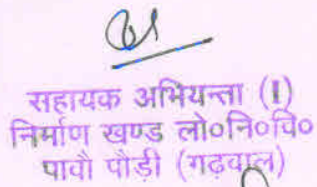 सहायक अभियन्ता (I)
निर्माण खण्ड लो०नि०वि०
पावौ पौड़ी (गढ़वाल)